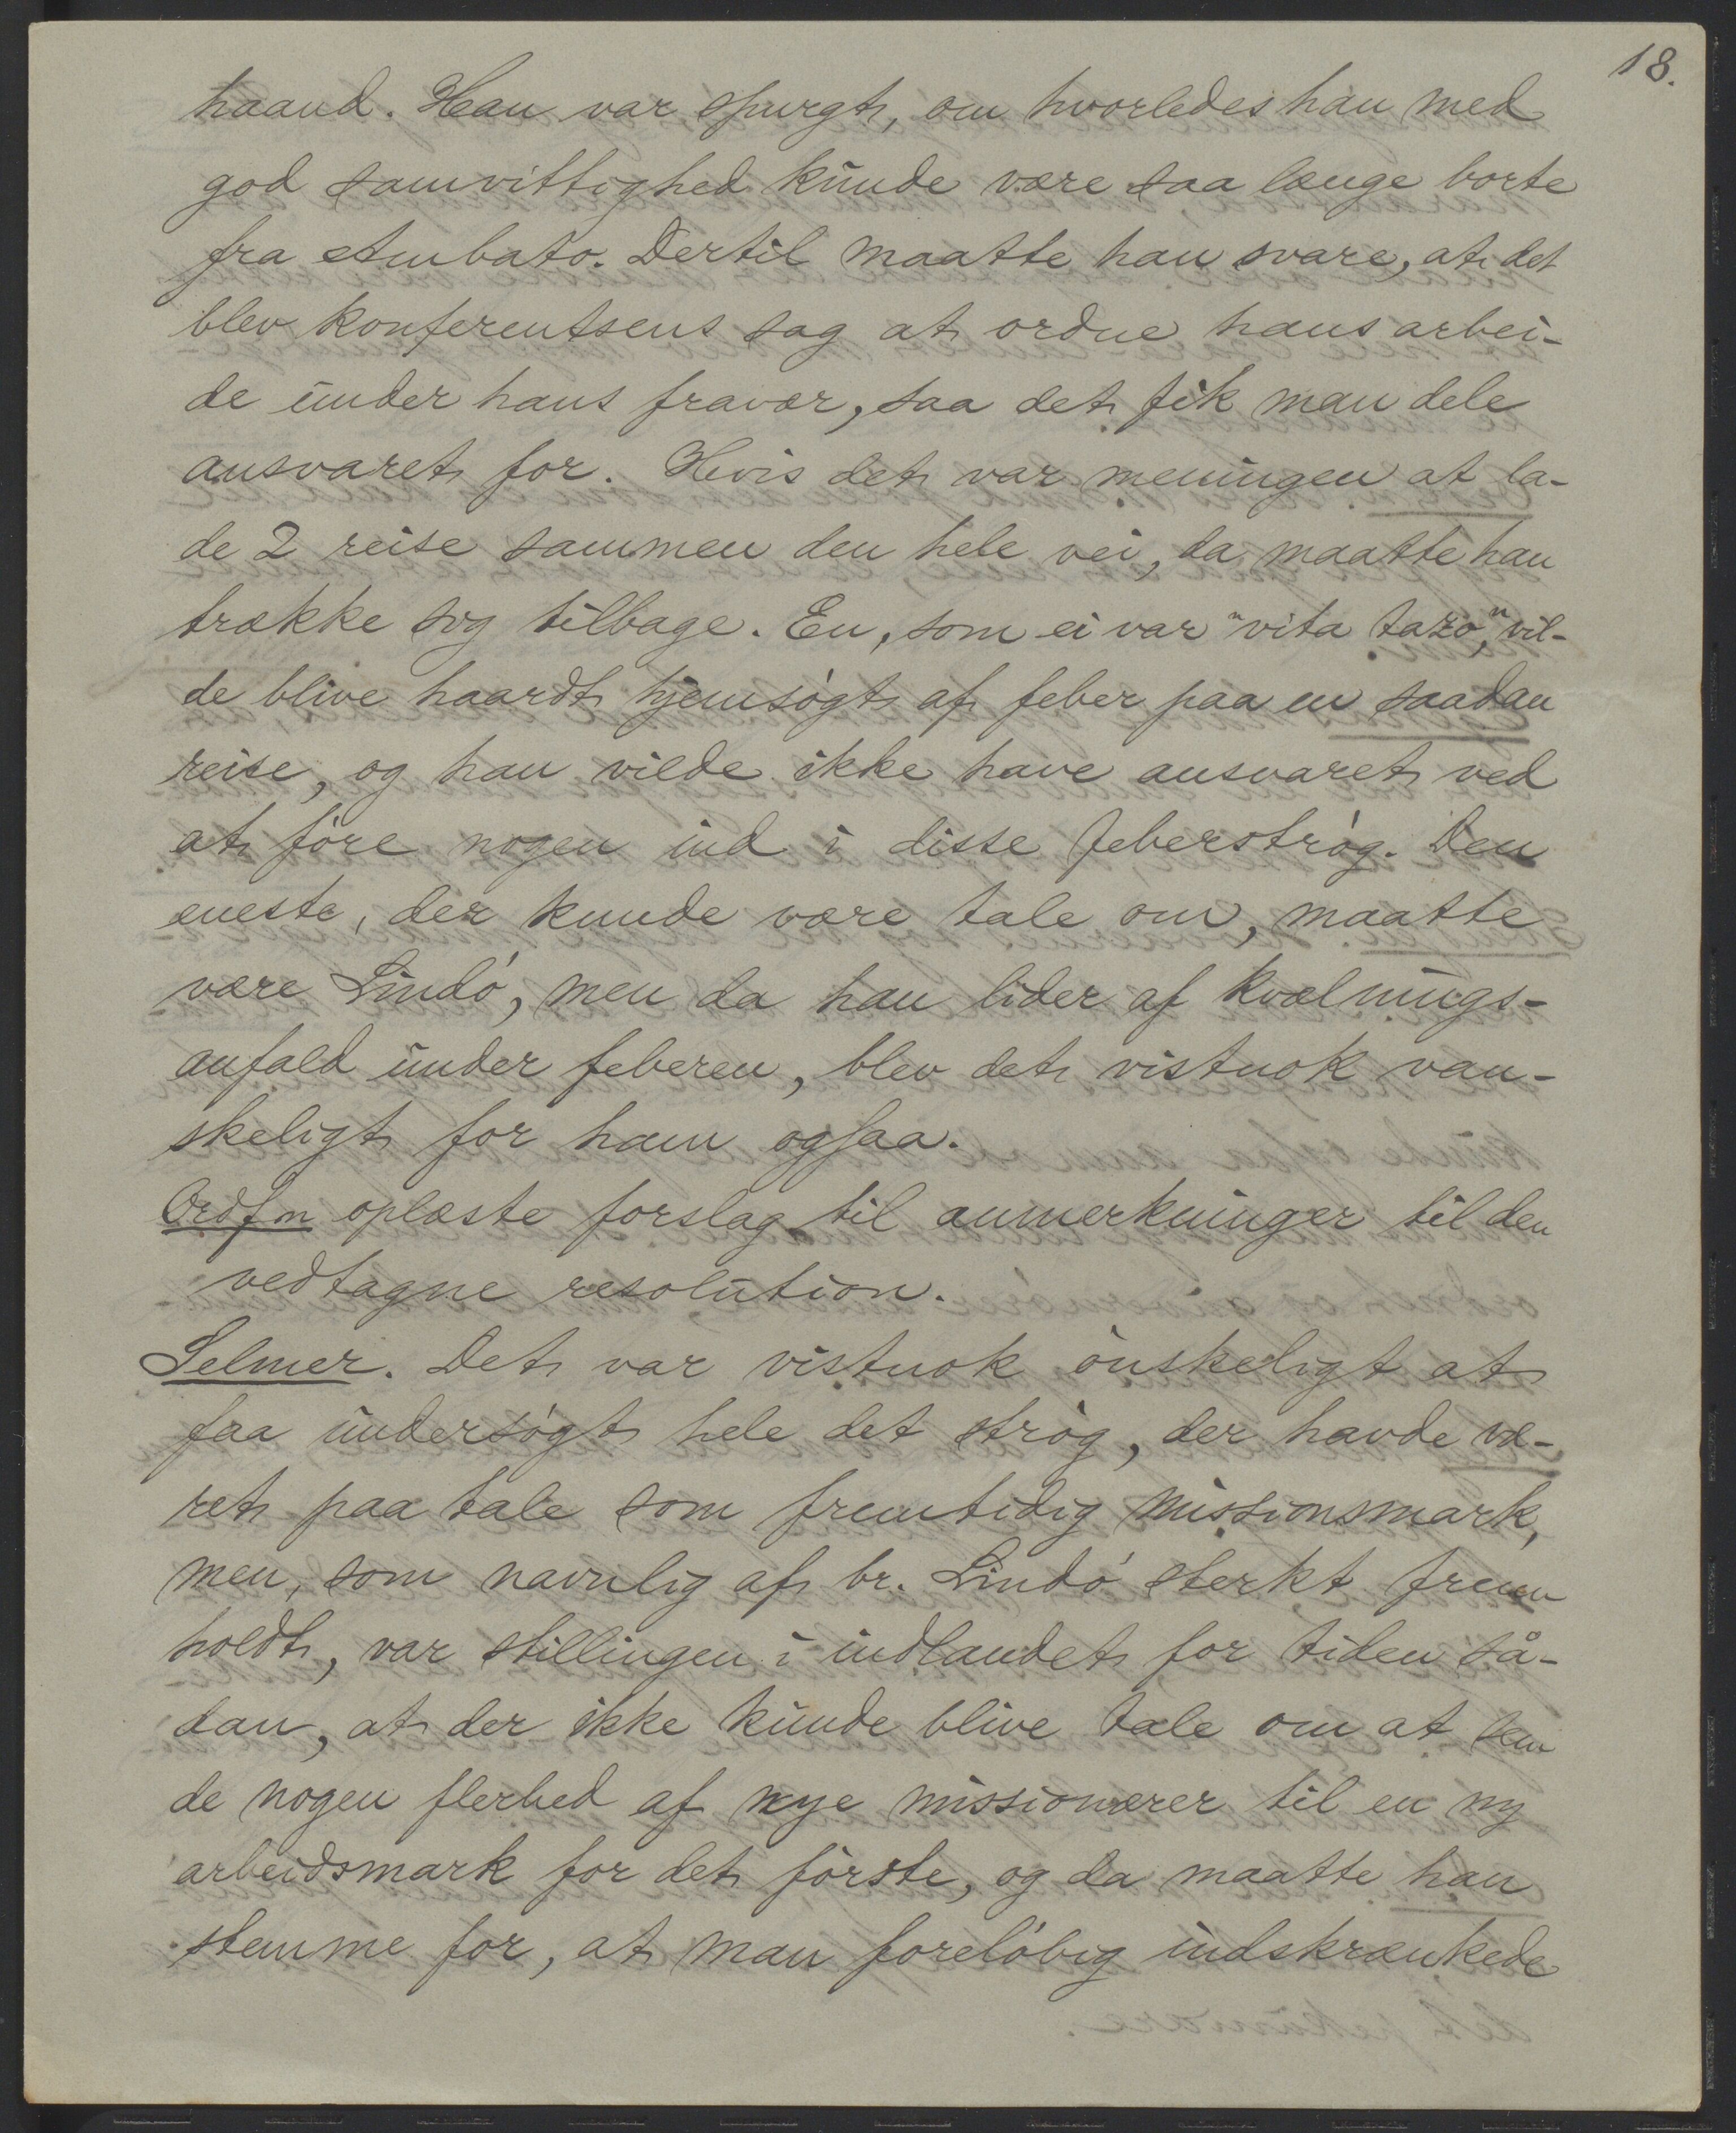 18.
haand. Han var spurgt, om hvorledes han med
god samvittighed kunde være saa længe borte
fra Ambato. Dertil maatte han svare, at det
blev konferentsens sag at ordne hans arbei-
de under hans fravær, saa det fik man dele
ansvaret for. Hvis det var meningen at la-
de 2 reise sammen den hele vei, da maatte han
trække sig tilbage. En, som ei var "vita tazo," vil-
de blive haardt hjemsøgt af feber paa en saadan
reise, og han vilde ikke have ansvaret ved
at føre nogen ind i disse feberstrøg. Den
eneste, der kunde være tale om, maatte
være Lindø, men da han lider af kvælnings-
anfald under feberen, blev det vistnok van-
skeligt for ham ogsaa.
Ordfm oplæste forslag til anmerkninger til den
vedtagne resolution.
Selmer. Det var vistnok ønskeligt at
faa undersøgt hele det strøg, der havde væ-
ret paa tale som fremtidig missionsmark,
men, som navnlig af br. Lindø sterkt frem
holdt, var stillingen i indlandet for tiden så-
dan, at der ikke kunde blive tale om at sen
de nogen flerhed af nye missionærer til en ny
arbeidsmark for det første, og da maatte han
stemme for, at man foreløbig indskrænkede